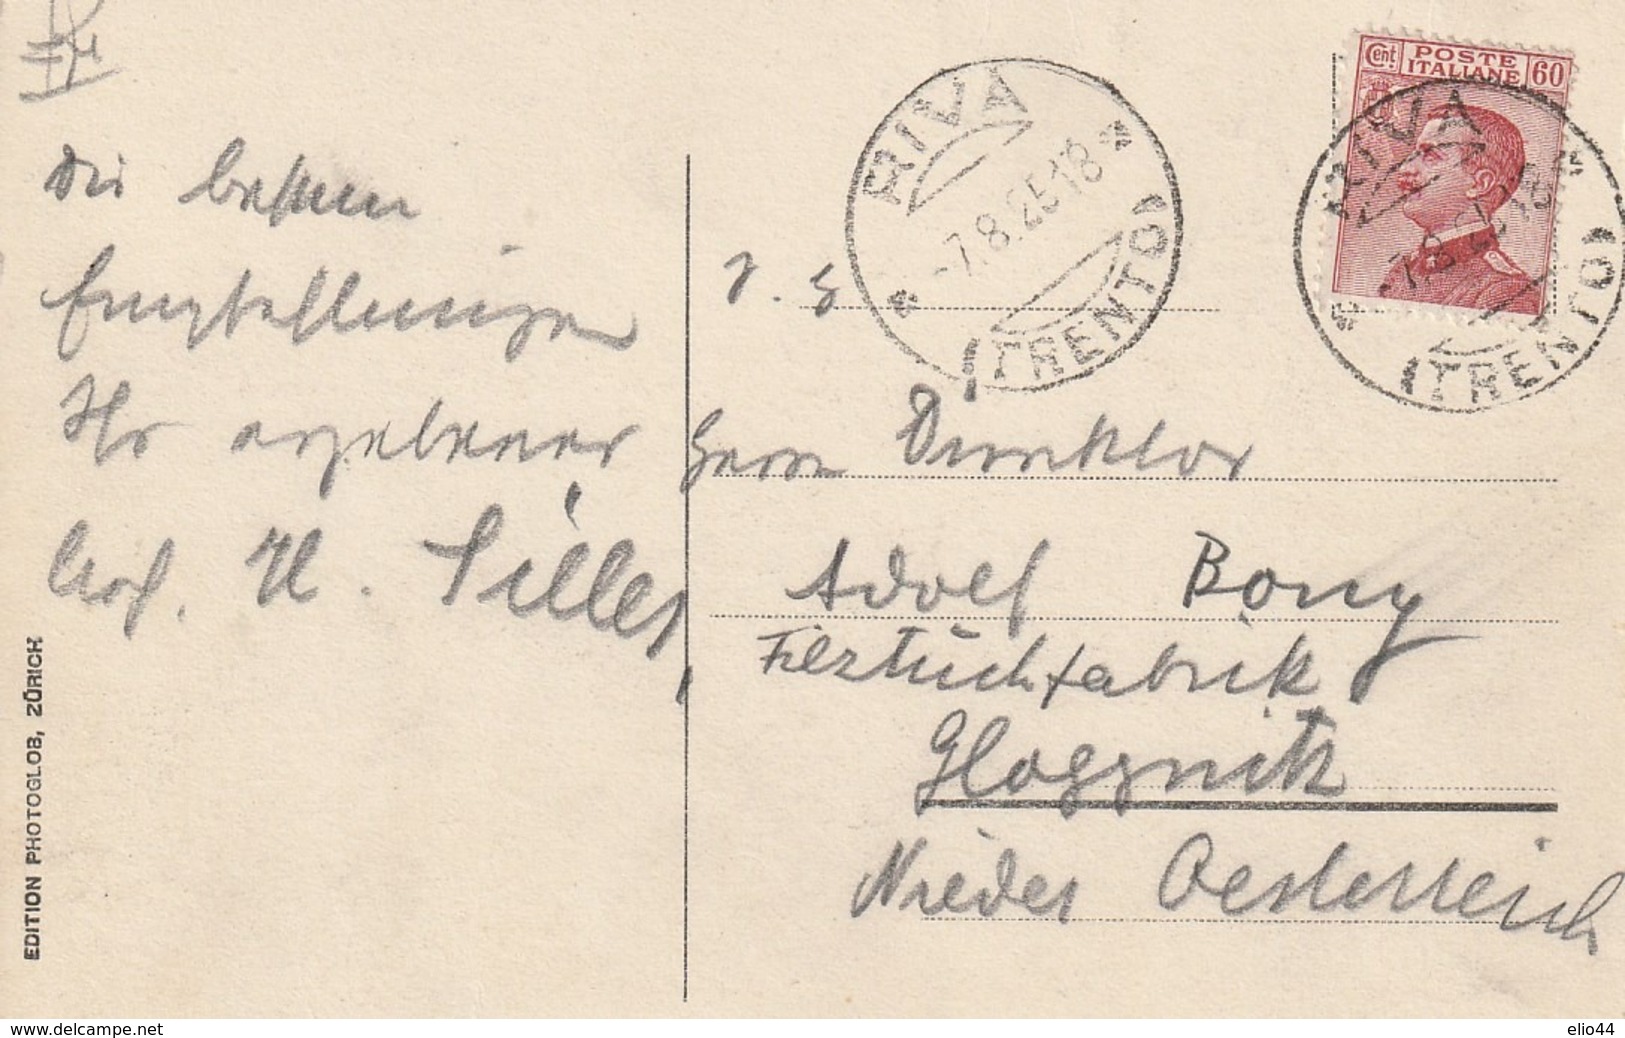 Die besten
Empfehlungen
Ihr ergebener
Prof. H.
EDITION PHOTOGLOB, ZÜRICH
RIVA
-7.8.25.18
(TRENTO)
Cent. POSTE ITALIANE 60
RIVA
-7.8.25.18
(TRENTO)
Herrn Direktor
Adolf Bony
Filztuchfabrik
Gloggnitz
Nieder Oesterreich
www.delcampe.net
elio44